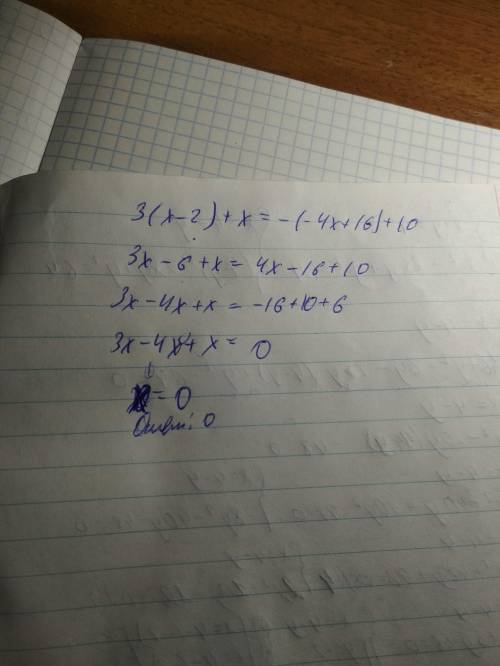 3(x-2)+x=-(-4x+16)+10
3x-6+x=4x-16+10
3x-4x+x=-16+10+6
3x-4x+x=0
=0
Ответ: 0